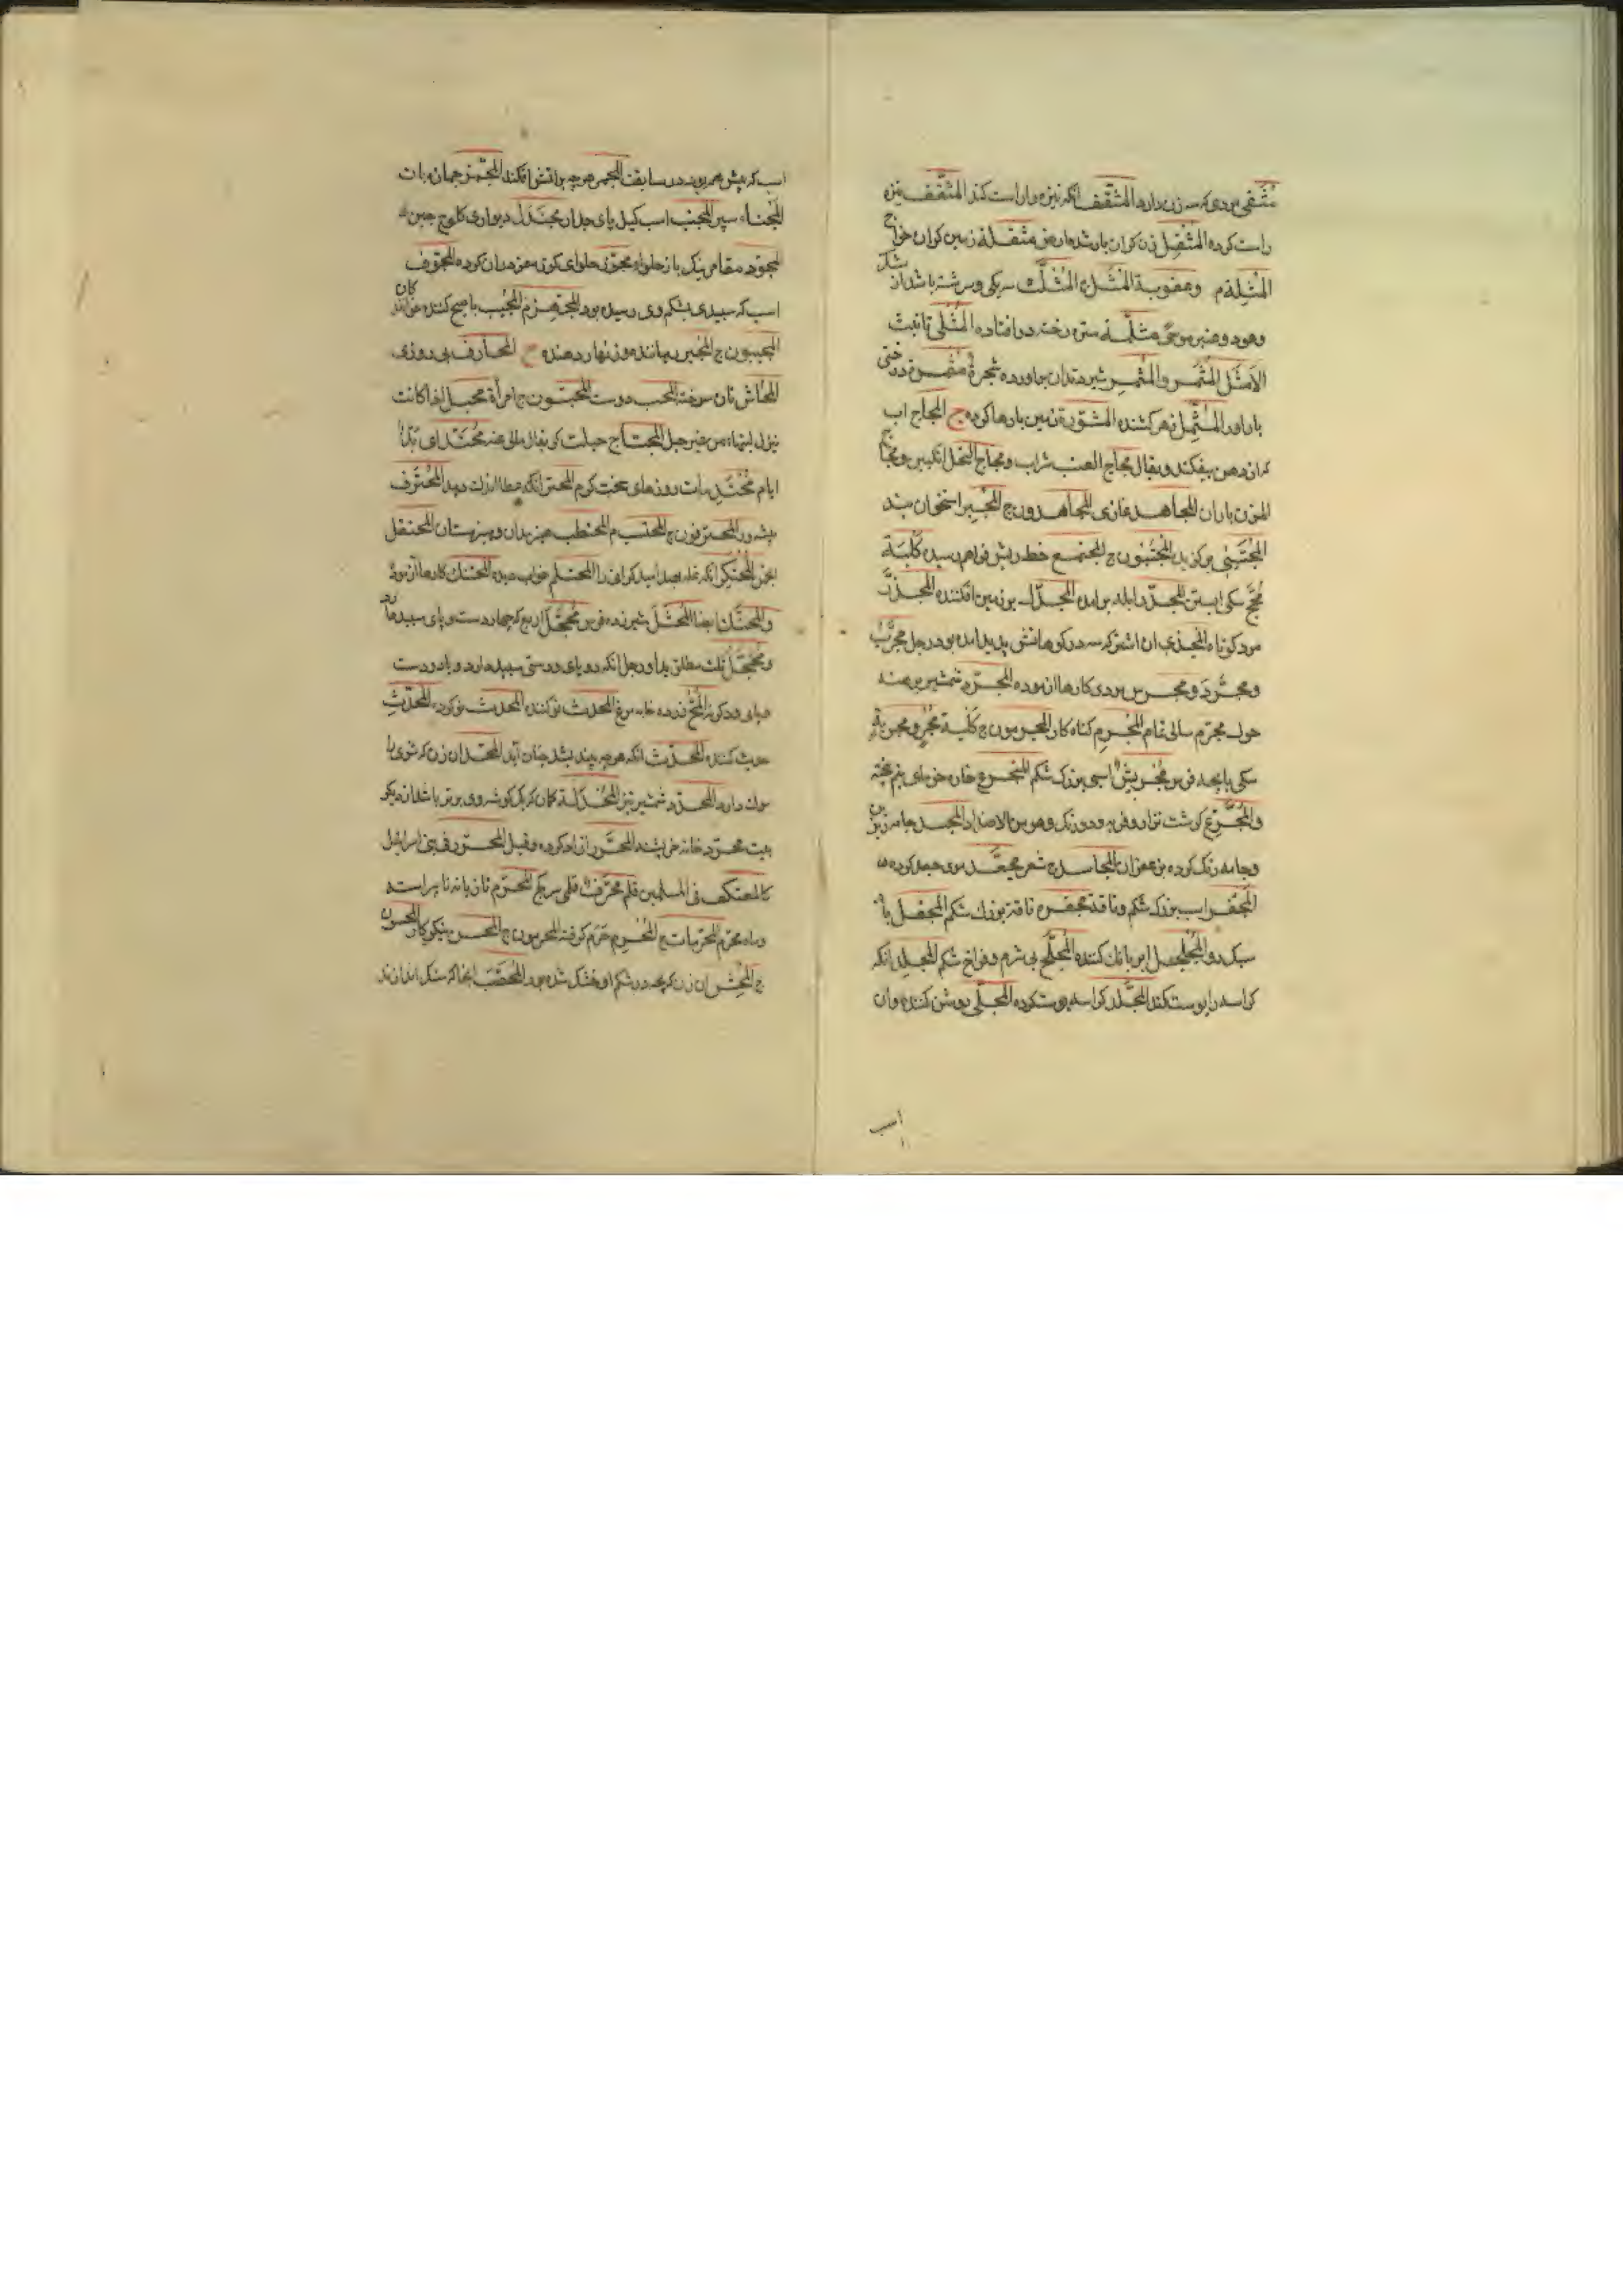 مُثَفّی مردی که سه زن دارد المثقِّف انکه نیزه را راست کند المثقَّف نیزه
راست کرده المُثقِل زن کران بار شده ارض مثقلة زمین کران خراج
المُثلِة م وعقوبة المُثلَّث سیکی ورشته باشد از
وعود وعنبر مثلّمة ستره رخنه در افتاده المُثلی تانیث
الاَمثَل المُثمَر والمُثمِر شیر دندان براورده شجرة مثمرة درختی
باراور المُثمِّل زهر کشنده المشورة زمین بارها کرده ج المجاج اب
کران دهن بیفکند ویقال مجاج العنب شراب ومجاج النحل انکبین ومجاج
المزن باران المجاهد غازی المجاهدون ج المُجبِر استخوان بند
المُجتَبی برکزیده المُجتَبون ج المجتمع خط ریش فراهم رسیده کلبة
مُجِحّ سکی ابستن المجدّر ابله برامده المجدّل بر زمین افکننده المجذّر
مرد کوتاه المُجذی ان اشتر که در کوهانش پیه پدید امده بود رجل مجرَّب
ومجرَّد ومجرّس مردی کارها ازموده المجرّد شمشیر برهنه
حول مجرّم سالی تمام المُجرِم کناه کار المجرمون ج کلبة مُجرٍ ومجریة
سکی با بچه فرس مُجرئش اسبی بزرک شکم المنجزع خاره خرمای نیم پخته
والمُجَزّع کوشت نزار وفربه ودو رنک وهو من الاضداد المجسد جامه زیرین
وجامه رنک کرده بزعفران المجاسد ج شعر مجعَّد موی جعد کرده
المُجفَر اسب بزرک شکم وناقة مجفرة ناقة بزرک شکم المجفل باد
سبک رو المُجلجل ابر با بانک کننده المُجلّح بی شرم وفراخ شکم المجلِّد انکه
کراسه را پوست کند المجلَّد کراسه پوست کرده المجلّی روشن کننده وان
اسب
اسب که پیش همه بود در مسابقت المجمر هرچه بر اتش افکنند المجمّز جمازه بان
المُجناء سپر المجنب اسب کتل پای جدار مجندل دیواری کلوخ چین
المجود مقامر نیک باز حلواء مجوّز حلوای کوز مغز دران کرده المجوّف
اسب که سپیدی بشکم وی رسیده بود المجهز م المُجیب پاسخ کننده
المجیبون ج المُجیر رهاننده وزنهار دهنده ح المحارف بی روزی
المُحاش نان سوخته المحب دوست المحبّون ج امرأة محبل اذا کانت
المحتاج
ایام محتدمات روزهای سخت کرم المحتر انکه عطا اندک دهد المُحترف
پیشه ور المحترفون ج المحتسب م المحتطب هیزم دان وهیزمستان المحتفل
انجمن المُحتکِر انکه غله بامید کرانی را المحتلم خواب دیده المحتنک کارها ازموده
والمحنّک ایضا المُحثل شیر زده فرس محجّل اربع که چهار دست وپای سپید دارد
ومُحجَّل ثلث مطلق ید او رجل انکه دو پای ودستی سپید دارد ویا دو دست
وپای ود کر المُحّ زرده خایه مرغ المحدث نو کننده المحدث نو کرده المُحدّث
حدیث کننده المحدَّث انکه هرچه پندیشد چنان آید المحدّ ان زن که شوی را
سوک دارد المحدّد شمشیر تیز المُحدلة کمان که یک کوشه وی برتر باشد از دیکر
بیت محرّد خانه خرپشته المحرَّر ازاد کرده وقیل المحرّر فی بنی اسرائیل
کالمعتکف فی المسلمین قلم محرّف قلمی سر کج المحرّم تازیانه نا پیراسته
وماه محرّم المحرّمات ج المُحرِم حَرَم کرفته المحرمون ج المحسن نیکوکار المحسنون
ج المُحِشّ ان زن که بچه در شکم او خشک شده بود المُحصَّب انجا که سنک اندازند